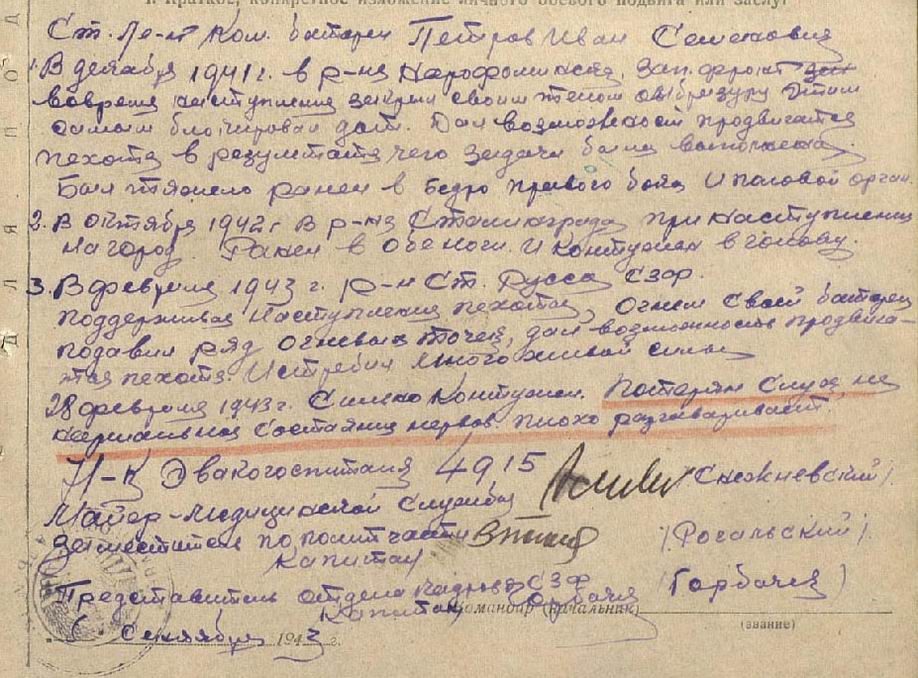 I. Краткое, конкретное изложение личного боевого подвига или заслуг
Ст. Ле-нт Ком. батареи Петров Иван Семенович
1. В декабря 1941 г. в р-не Нарофоминска. Зап. фронт
вовремя наступления закрыл своим телом амбразуру этим
самым блокировал дот. Дал возможност продвигатся
пехоте в результате чего задача была выполнена.
Был тяжело ранен в бедро правого бока и половой орган.
2. В октября 1942 г В р-не Сталинграда при наступлении
на город. Ранен в обе ноги. И контужен в голову.
3. В февреля 1943 г. р-н Ст. Русса СЗФ.
поддерживая наступления пехоты, Огнем своей батареи
подавил ряд огневых точек, дал возможность продвига-
тся пехоте. Истребил много живой силы
28 февреля 1943 г. Сильно Контужен. Потерян Слух не
нармальное состояния нервов. плохо разговаривает.
Н-к Эвакогоспиталя 4915 Снежневский/
Майор-медицинской Службы
Заместитель по политчасти /Рогальский/
Капитан
Представитель отдела Кадров СЗФ
Капитан Горбачев (Горбачев)
Командир (начальник)
(звание)
Сентября 1943 г.
Д Л Я П О Д